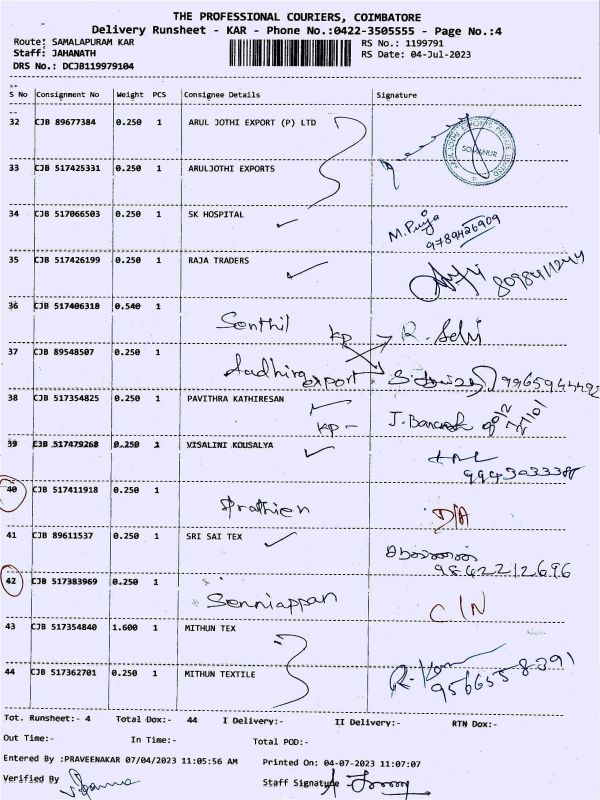 THE PROFESSIONAL COURIERS, COIMBATORE
Delivery Runsheet - KAR - Phone No.:0422-3505555 - Page No.:4
Route: SAMALAPURAM KAR RS No.: 1199791
Staff: JAHANATH RS Date: 04-Jul-2023
DRS No.: DCJB119979104
S No Consignment No Weight PCS Consignee Details Signature
32 CJB 89677384 0.250 1 ARUL JOTHI EXPORT (P) LTD
33 CJB 517425331 0.250 1 ARULJOTHI EXPORTS
34 CJB 517066503 0.250 1 SK HOSPITAL M. Priya
9789426909
35 CJB 517426199 0.250 1 RAJA TRADERS
36 CJB 517406318 0.540 1
Senthil kp R. Selvi
37 CJB 89548507 0.250 1
Aadhira export 9965944492
38 CJB 517354825 0.250 1 PAVITHRA KATHIRESAN
kp -
39 CJB 517479268 0.250 1 VISALINI KOUSALYA
40 CJB 517411918 0.250 1
Prathien D/A
41 CJB 89611537 0.250 1 SRI SAI TEX
9842212696
42 CJB 517383969 0.250 1
Senniappan C/N
43 CJB 517354840 1.600 1 MITHUN TEX
44 CJB 517362701 0.250 1 MITHUN TEXTILE
Tot. Runsheet:- 4 Total Dox:- 44 I Delivery:- II Delivery:- RTN Dox:-
Out Time:- In Time:- Total POD:-
Entered By :PRAVEENAKAR 07/04/2023 11:05:56 AM Printed On: 04-07-2023 11:07:07
Verified By Staff Signature